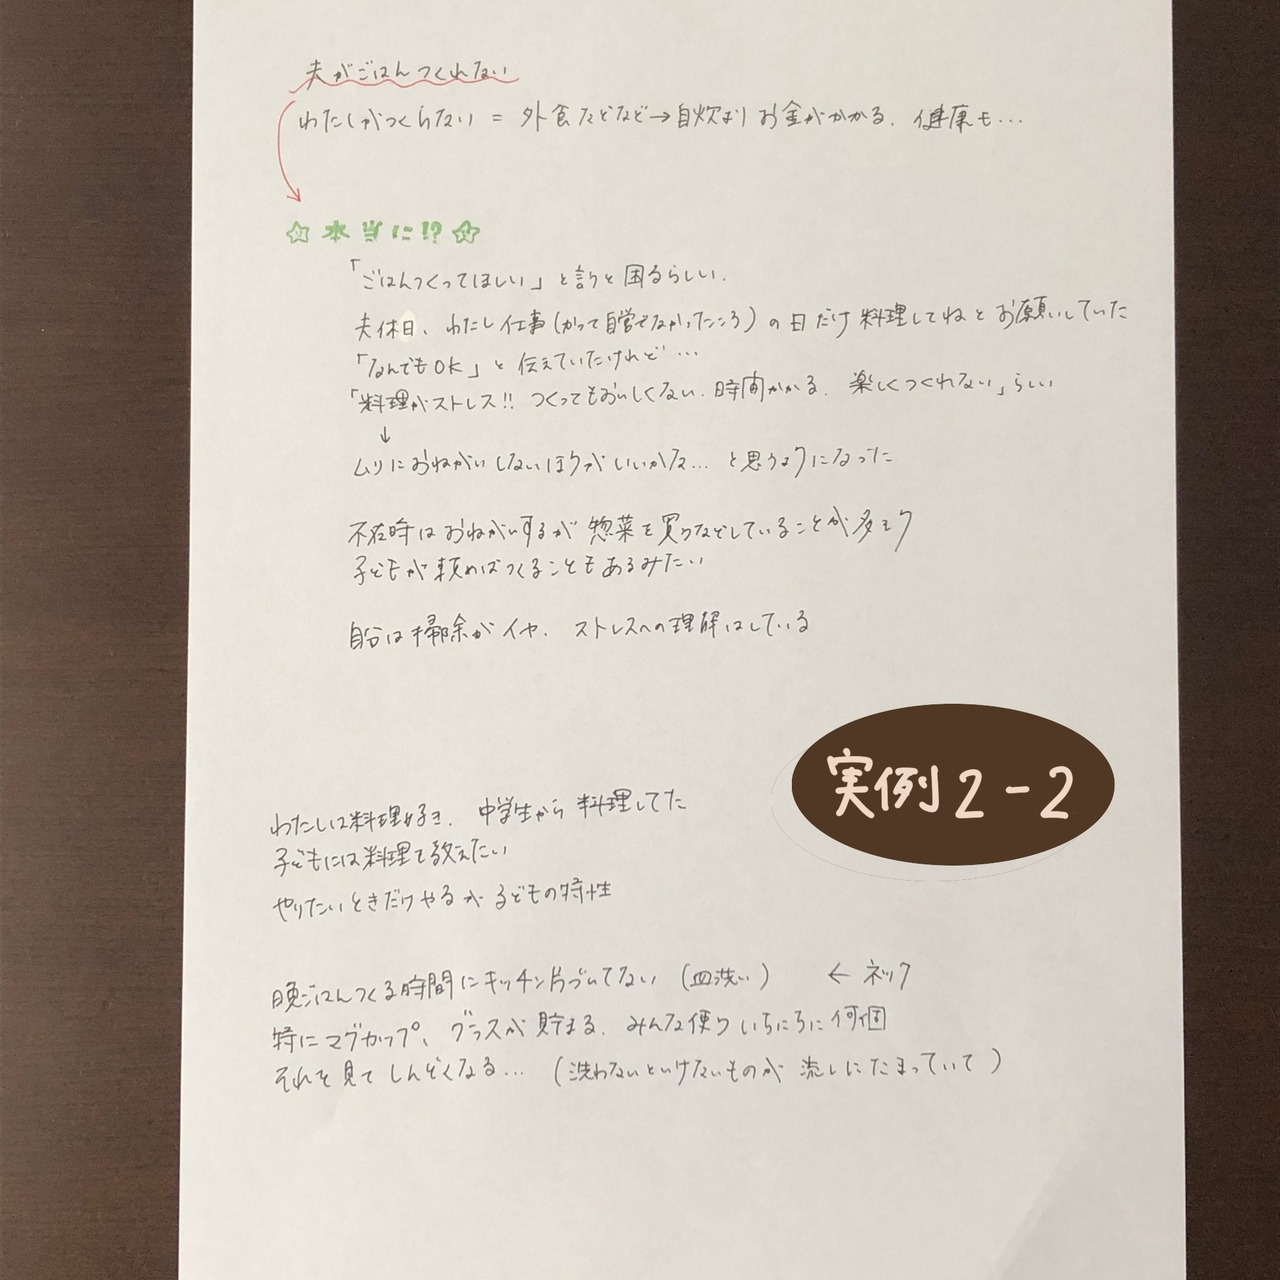 夫がごはんつくれない
わたしがつくらない = 外食などなど→自炊よりお金がかかる、健康も…
☆本当に!?☆
「ごはんつくってほしい」と言うと困るらしい.
夫休日、わたし仕事(かつて自営でなかったころ)の日だけ料理してねとお願いしていた
「なんでもOK」と伝えていたけれど…
「料理がストレス!! つくってもおいしくない. 時間かかる. 楽しくつくれない」らしい
↓
ムリにおねがいしないほうがいいかな… と思うようになった
不在時はおねがいするが惣菜を買うなどしていることが多そう
子どもが頼めばつくることもあるみたい
自分は掃除がイヤ. ストレスへの理解はしている
実例2-2
わたしは料理好き. 中学生から料理してた
子どもには料理を教えたい
やりたいときだけやるが子どもの特性
晩ごはんつくる時間にキッチン片づいてない (皿洗い) ← ネック
特にマグカップ、グラスが貯まる. みんな使う いちにちに何個
それを見てしんどくなる… (洗わないといけないものが流しにたまっていて)